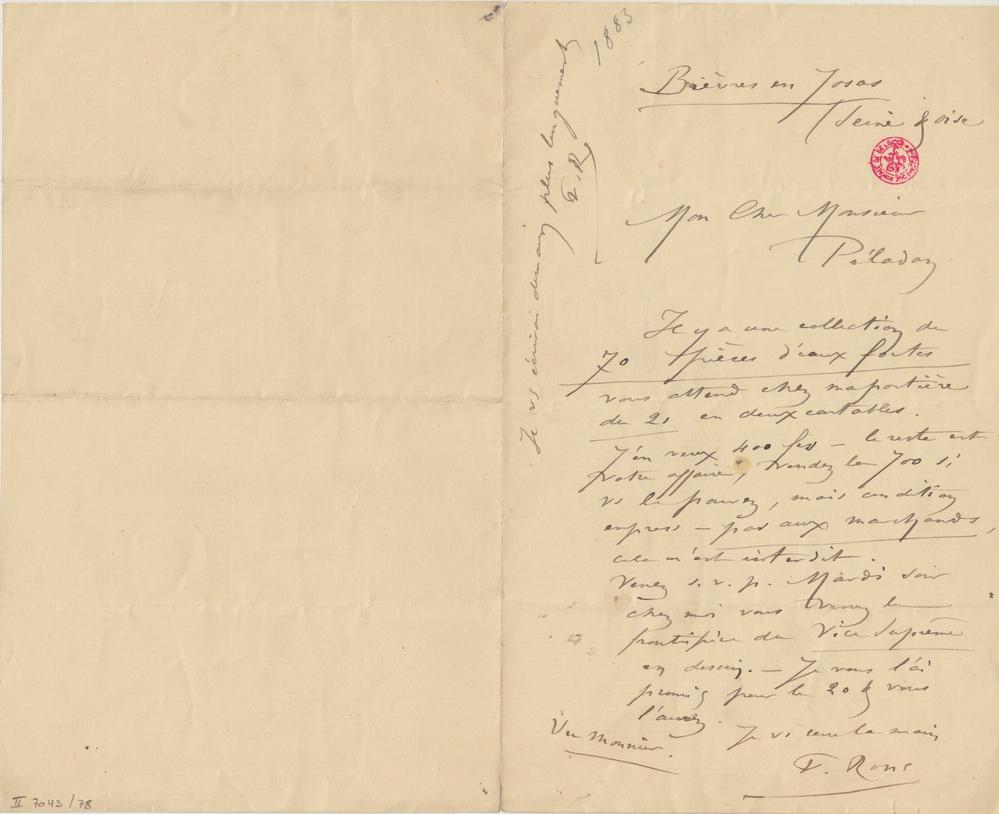 1883
Bièvres en Josas
Seine & Oise
Mon Cher Monsieur
Péladan
Il y a une collection de
70 pièces d'eaux fortes
vous attend chez ma portière
du 21 en deux cartables.
J'en veux 400 frs – le reste est
votre affaire, vendez les 700 si
vs le pouvez, mais condition
express – pas aux marchands,
cela m'est interdit.
Venez s. v. p. Mardi soir
chez moi vous verrez le
frontispice du Vice Suprême
en dessin. – Je vous l'ai
promis pour le 20 & vous
l'aurez.
Je vs serre la main
F. Rops
Vu Monnier.
Je vs écrirai demain plus longuement
F. R.
II 7043 / 78